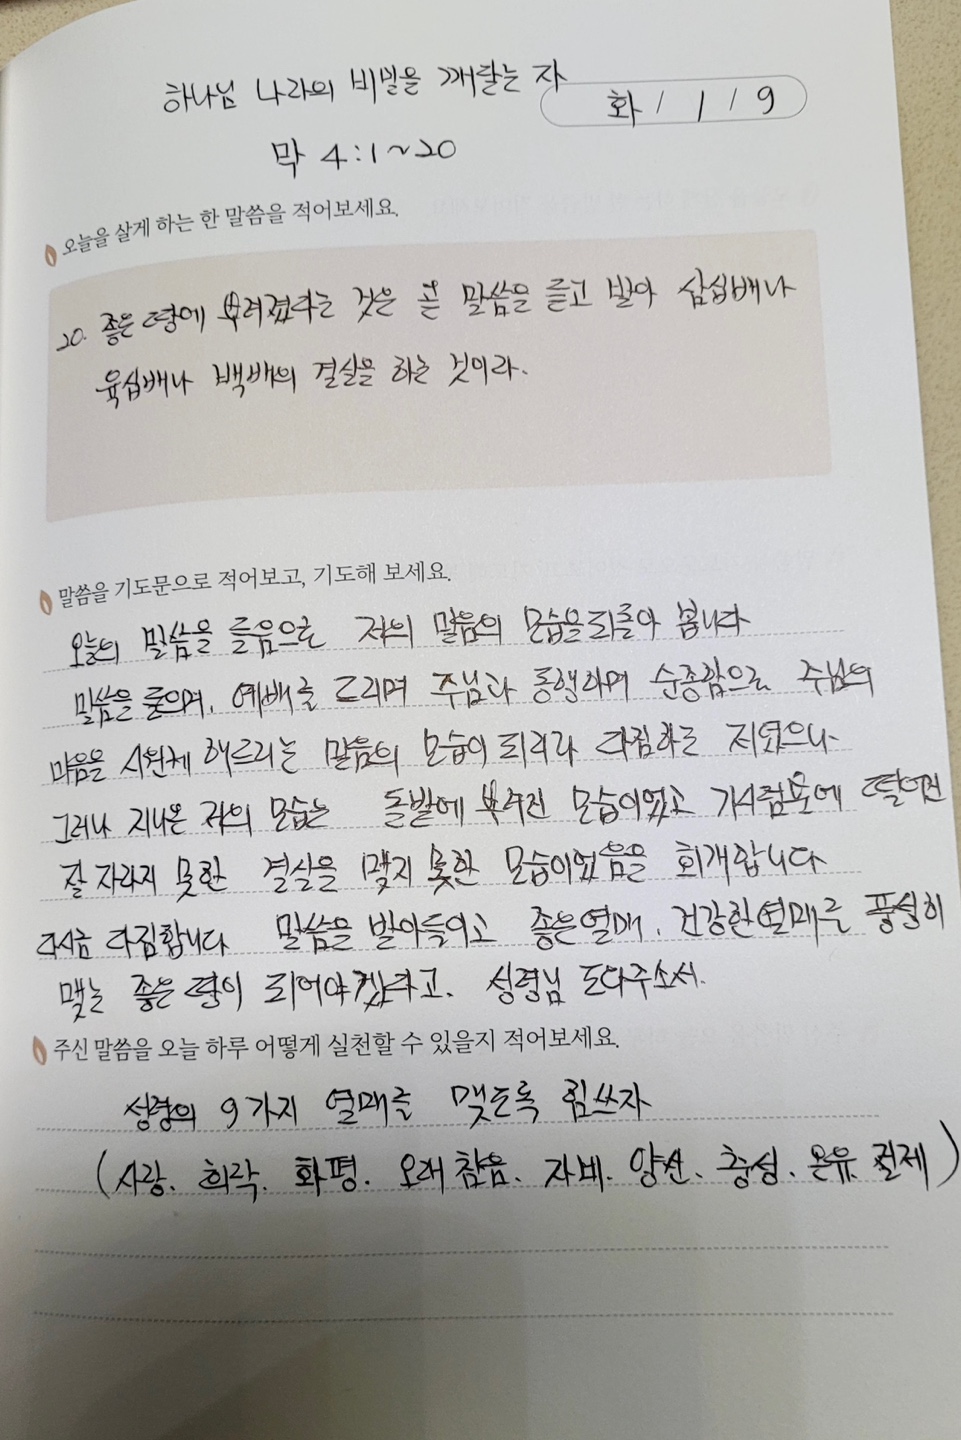 하나님 나라의 비밀을 깨닫는 자
화 / 1 / 9
막 4:1~20
오늘을 살게 하는 한 말씀을 적어보세요.
20. 좋은 땅에 뿌려졌다는 것은 곧 말씀을 듣고 받아 삼십배나
육십배나 백배의 결실을 하는 것이라.
말씀을 기도문으로 적어보고, 기도해 보세요.
오늘의 말씀을 들음으로 저의 믿음의 모습을 되돌아 봅니다
말씀을 들으며, 예배를 드리며 주님과 동행하며 순종함으로 주님의
마음을 시원케 해드리는 믿음의 모습이 되리라 다짐하고 지냈으나
그러나 지나온 저의 모습은 돌밭에 뿌려진 모습이었고 가시덤불에 떨어진
잘 자라지 못한 결실을 맺지 못한 모습이었음을 회개합니다
다시금 다짐합니다 말씀을 받아들이고 좋은열매, 건강한열매를 풍성히
맺는 좋은 땅이 되어야겠다고, 성령님 도와주소서.
주신 말씀을 오늘 하루 어떻게 실천할 수 있을지 적어보세요.
성령의 9가지 열매를 맺도록 힘쓰자
(사랑. 희락. 화평. 오래참음. 자비. 양선. 충성. 온유 절제)